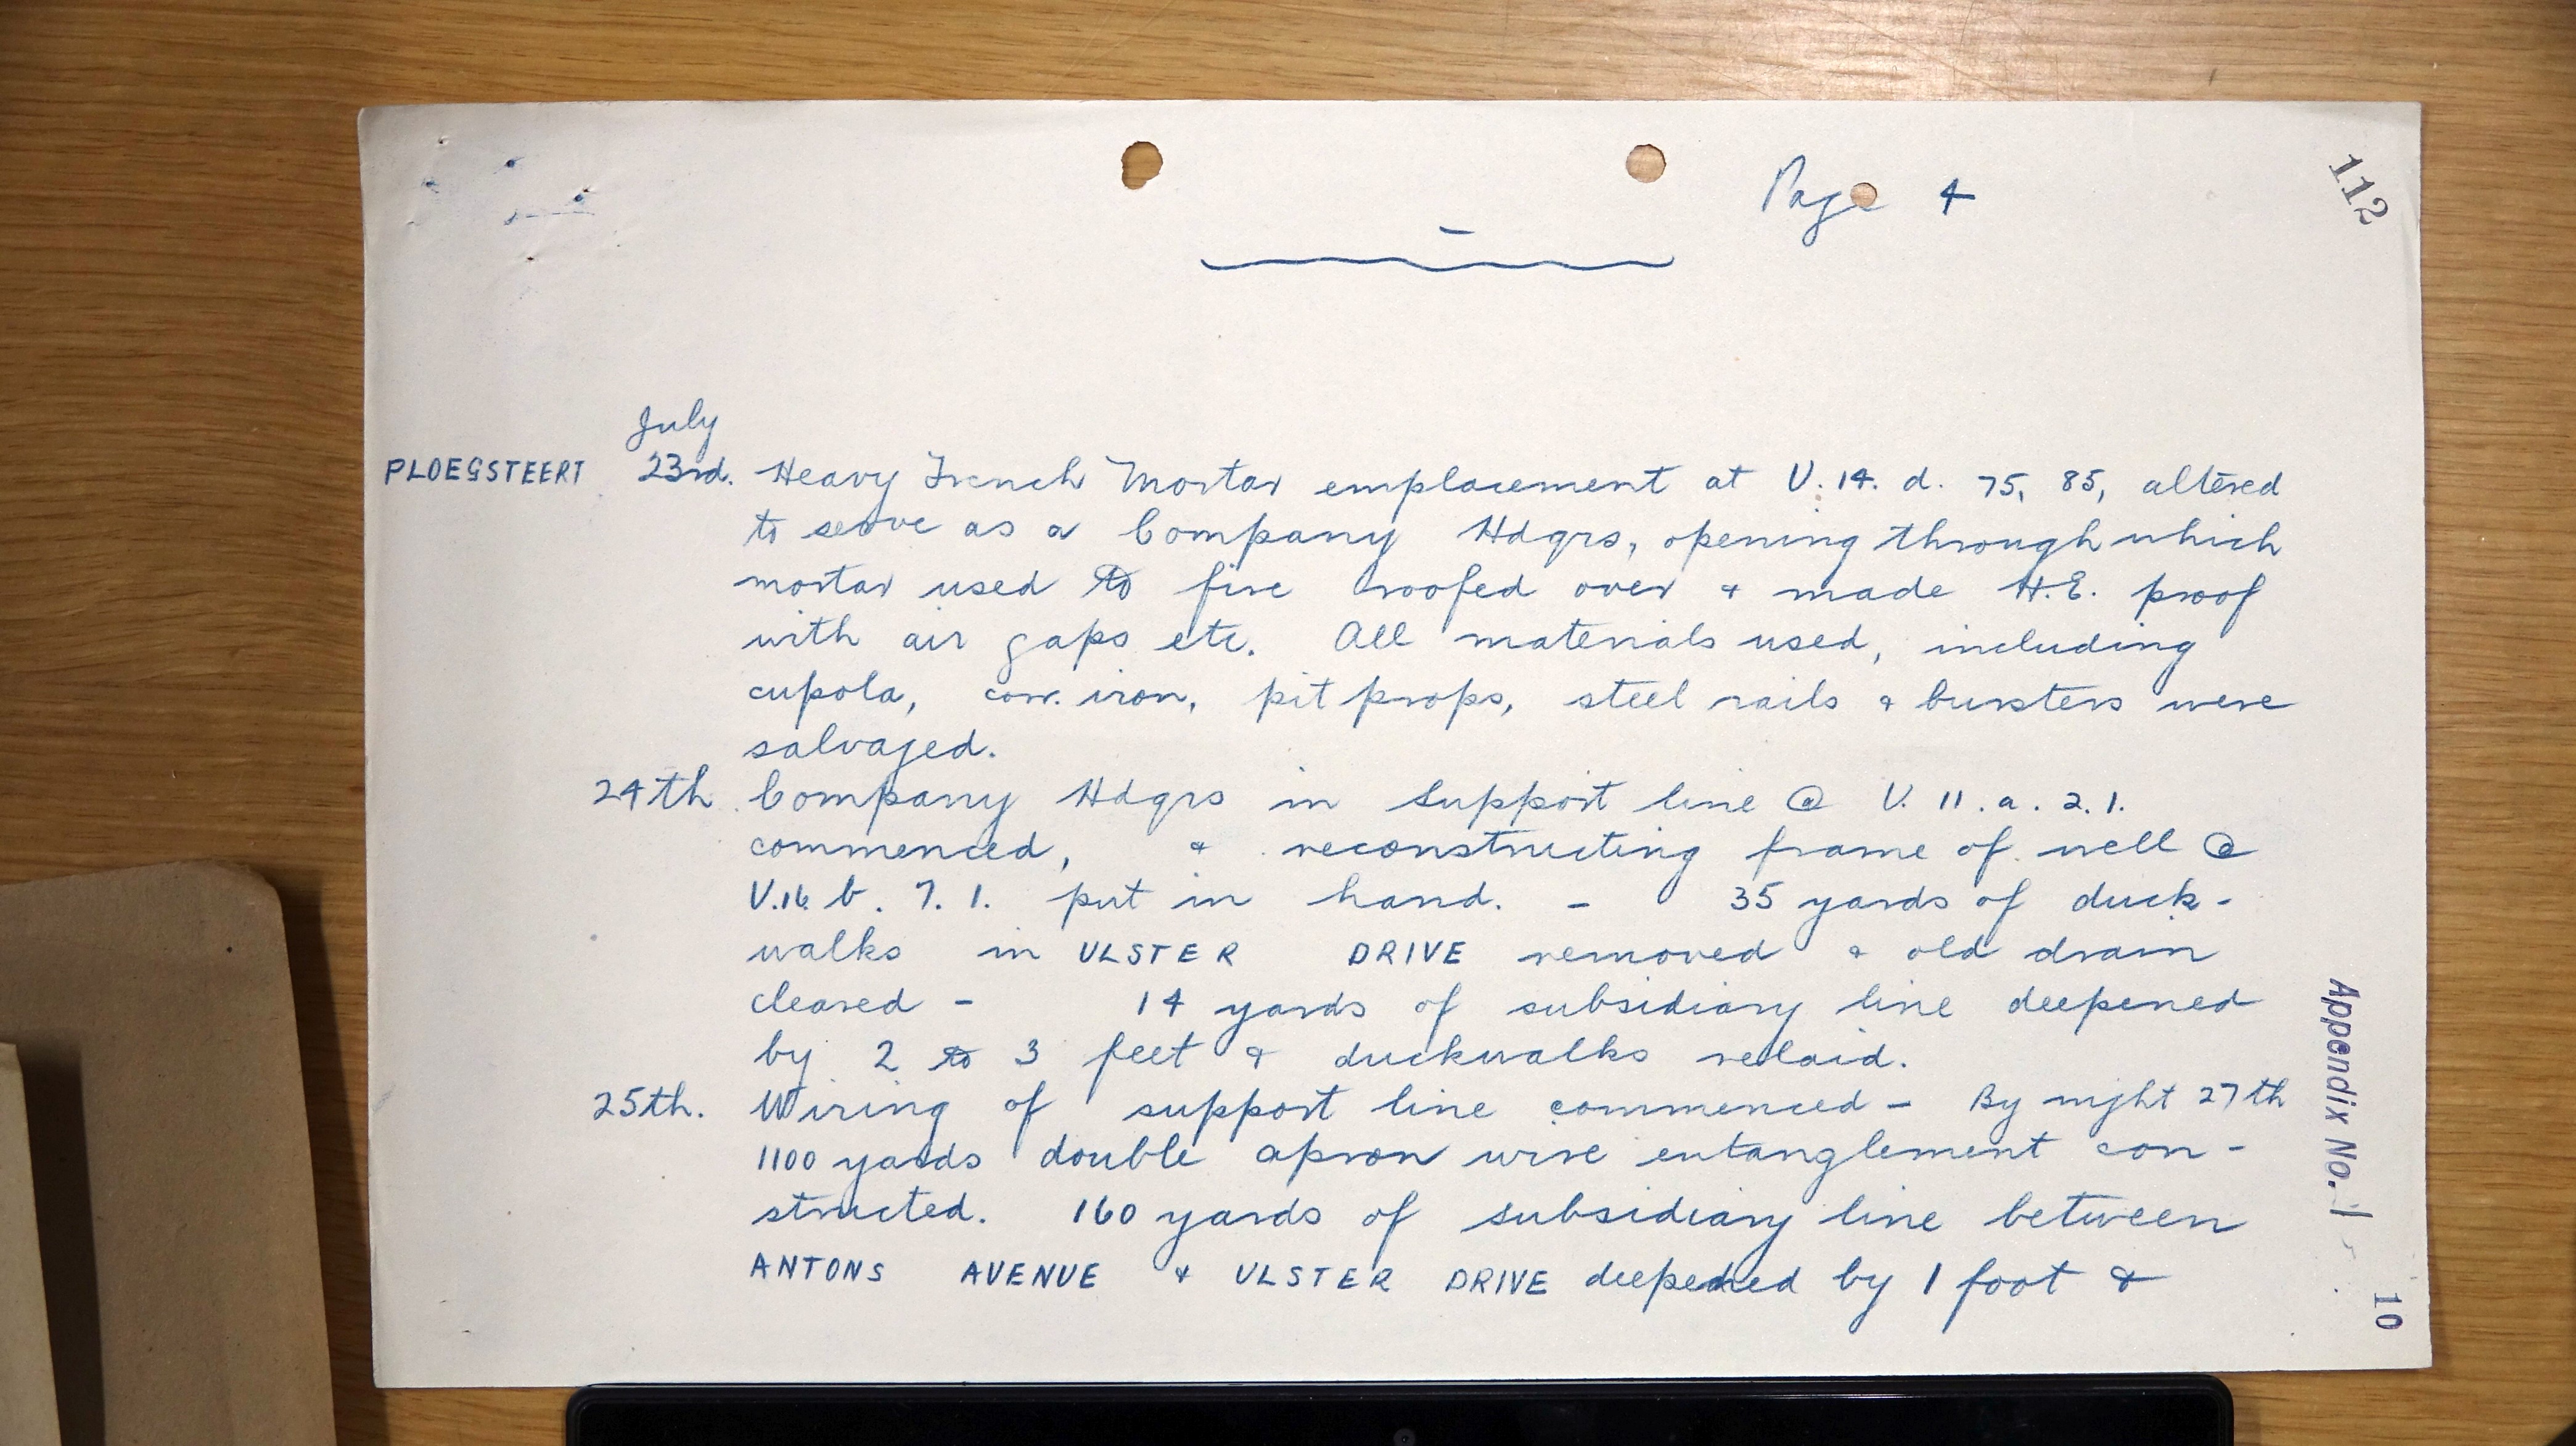 Page 4
112
July
PLOEGSTEERT 23rd. Heavy Trench Mortar emplacement at U.14. d. 75, 85, altered
to serve as a Company Hdqrs, opening through which
mortar used to fire roofed over & made H.E. proof
with air gaps etc. All materials used, including
cupola, corr. iron, pit props, steel rails & bursters were
salvaged.
24th Company Hdqrs in support line @ U. 11. a. 2. 1.
commenced, & reconstructing frame of well @
U.16. b. 7. 1. put in hand. - 35 yards of duck-
walks in ULSTER DRIVE removed & old drain
cleared - 14 yards of subsidiary line deepened
by 2 to 3 feet & duckwalks relaid.
25th. Wiring of support line commenced - By night 27th
1100 yards double apron wire entanglement con-
structed. 160 yards of subsidiary line between
ANTONS AVENUE & ULSTER DRIVE deepened by 1 foot &
Appendix No. 1
10